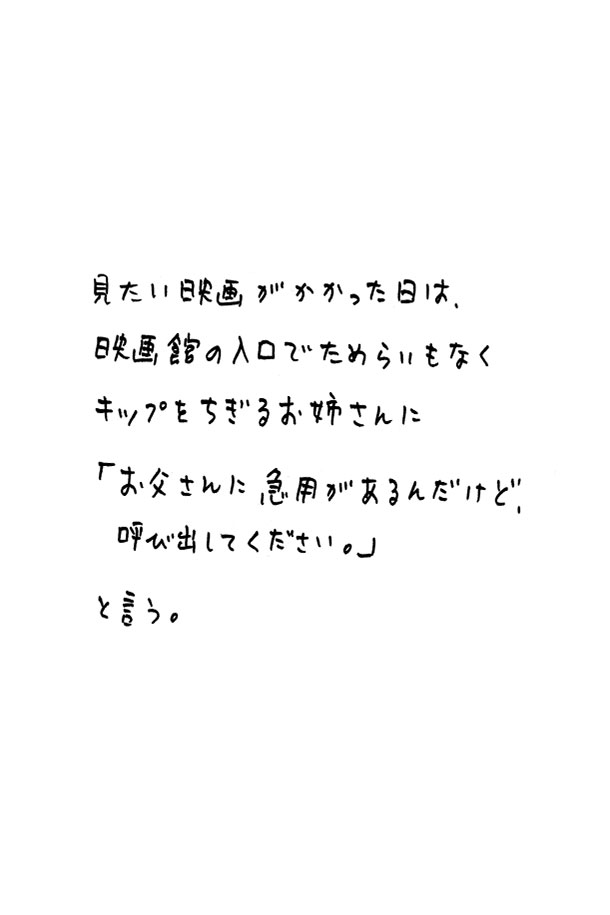 見たい映画がかかった日は、
映画館の入口でためらいもなく
キップをちぎるお姉さんに
「お父さんに急用があるんだけど、
呼び出してください。」
と言う。